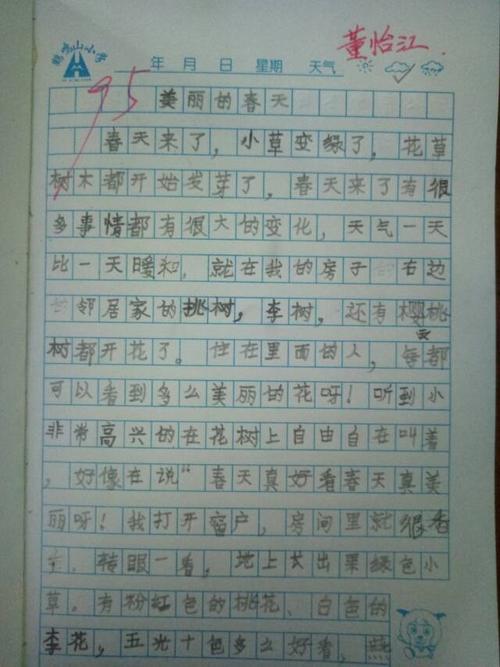 鹤鸣山小学
董怡江.
年 月 日 星期 天气
95
美丽的春天
春天来了，小草变绿了，花草
树木都开始发芽了，春天来了有很
多事情都有很大的变化，天气一天
比一天暖和，就在我的房子右边
邻居家的挑树，李树，还有樱桃
树都开花了。住在里面的人，每天都
可以看到多么美丽的花呀！听到小
非常高兴的在花树上自由自在叫着
，好像在说“春天真好看春天真美
丽呀！我打开窗户，房间里就很香
转眼一看，地上长出果绿色小
草。有粉红色的桃花、白色的
李花，五光十色多么好看，燕